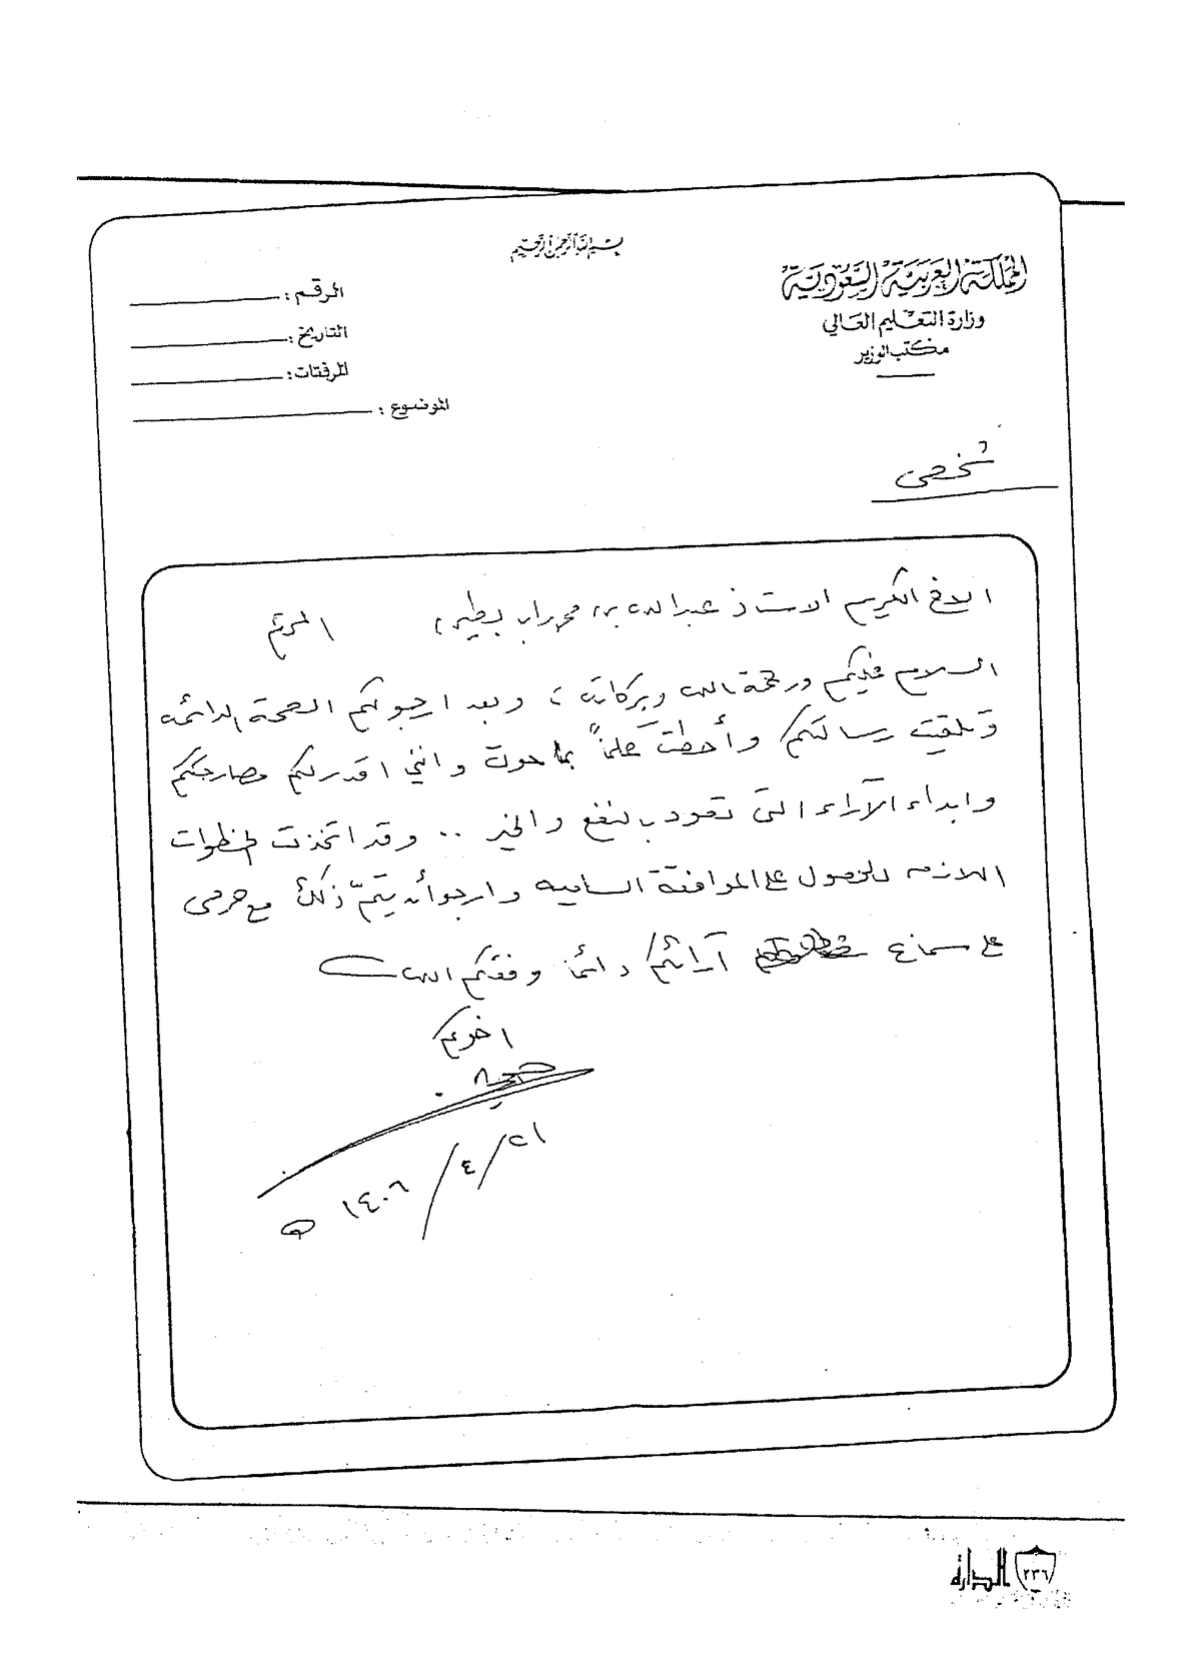 بسم الله الرحمن الرحيم
المملكة العربية السعودية
وزارة التعليم العالي
مكتب الوزير
الرقم :
التاريخ :
المرفقات :
الموضوع :
شخصي
الاخ الكريم الاستاذ عبدالله بن محمد المحترم
السلام عليكم ورحمة الله وبركاته ، وبعد ارجو لكم الصحة الدائمه
وتلقيت رسالتكم وأحطت علماً بما حوت وانني اقدر لكم مصارحتكم
وابداء الآراء التي تعود بنفع والخير .. وقد اتخذت الخطوات
اللازمه للحصول على الموافقة الساميه وارجو أن يتمّ ذلك مع حرصي
على سماع آرائكم دائما وفقكم الله
اخوكم
٢١/٤/١٤٠٦ ه
الدارة ٢٣٦